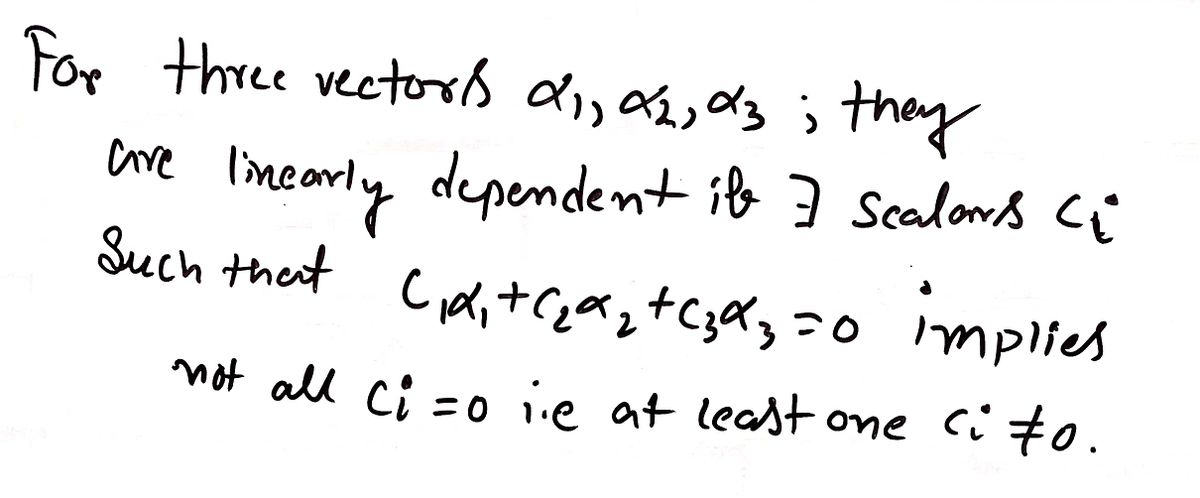 For three vectors α₁, α₂, α₃ ; they
are linearly dependent if ∃ scalars cᵢ
Such that c₁α₁+c₂α₂+c₃α₃=0 implies
not all ci =0 i.e at least one ci ≠0.